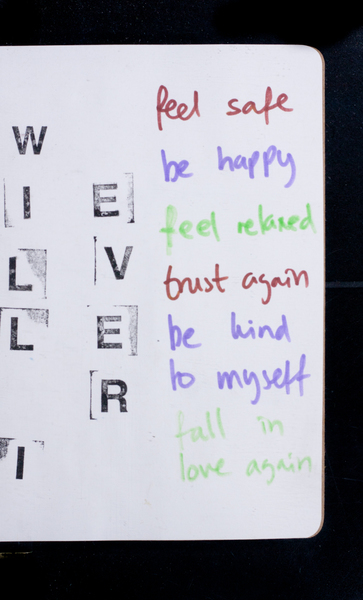 WILL I
EVER
feel safe
be happy
feel relaxed
trust again
be kind
to myself
fall in
love again